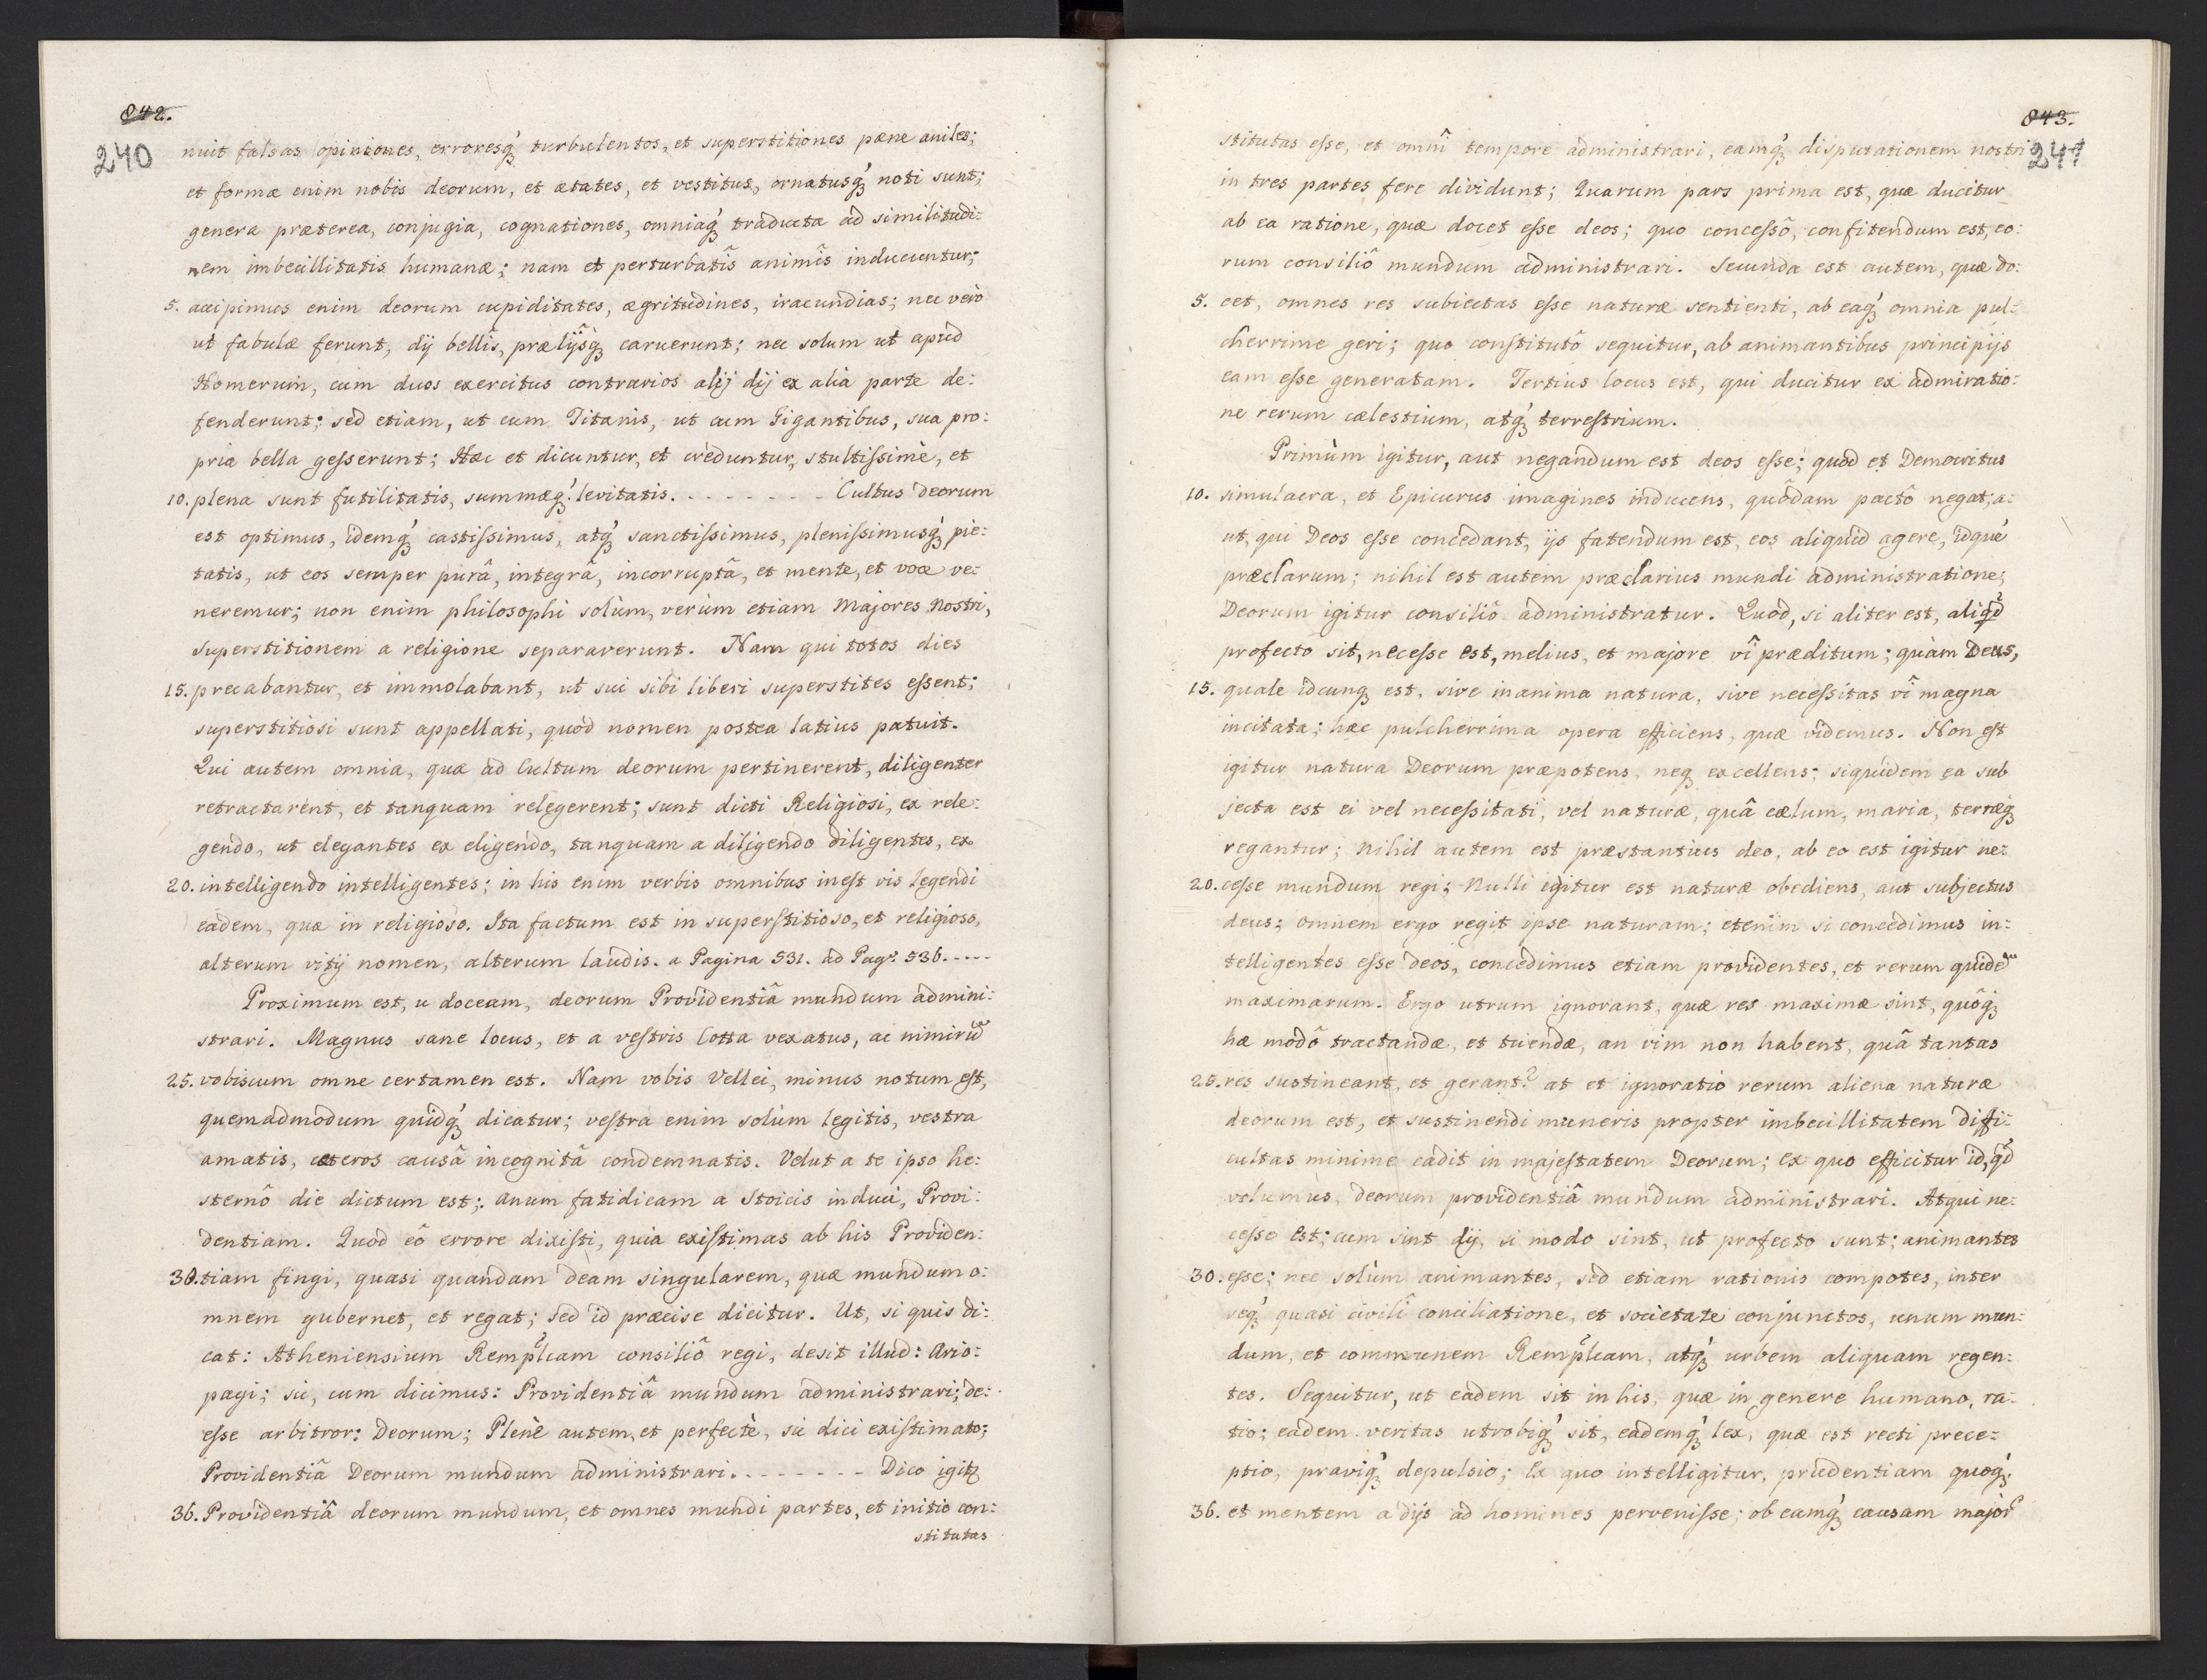 842.
240
nuit falsas opiniones, erroresq́ꝫ turbulentos, et superstitiones pæne aniles;
et formæ enim nobis deorum, et ætates, et vestitus, ornatusq́ꝫ noti sunt;
genera præterea, conjugia, cognationes, omniaq́ꝫ traducta ad similitudi:
nem imbecillitatis humanæ; nam et perturbatîs animîs inducuntur;
5. accipimus enim deorum cupiditates, ægritudines, iracundias; nec verò
ut fabulæ ferunt, dÿ bellîs, prælÿsq́ꝫ caruerunt; nec solum ut apud
Homerum, cum duos exercitus contrarios alÿ dij ex alia parte de:
fenderunt; sed etiam, ut cum Titanis, ut cum Gigantibus, sua pro:
pria bella geſserunt; Hæc et dicuntur, et creduntur, stultiſsimè, et
10. plena sunt futilitatis, summæq́ꝫ levitatis. . . . . . . . Cultus deorum
est optimus, idemq́ꝫ castiſsimus, atq́ꝫ sanctiſsimus, pleniſsimusq́ꝫ pie:
tatis, ut eos semper purâ, integrâ, incorruptâ, et mente, et voce ve:
neremur; non enim philosophi solùm, verùm etiam Majores nostri,
superstitionem a religione separaverunt. Nam qui totos dies
15. precabantur, et immolabant, ut sui sibi liberi superstites eſsent;
superstitiosi sunt appellati, quod nomen postea latius patuit.
Qui autem omnia, quæ ad Cultum deorum pertinerent, diligenter
retractarent, et tanquam relegerent; sunt dicti Religiosi, ex rele:
gendo, ut elegantes ex eligendo, tanquam a diligendo diligentes, ex
20. intelligendo intelligentes; in his enim verbis omnibus ineſt vis legendi
eadem, quæ in religioso. Ita factum est in superſtitioso, et religioso,
alterum vitÿ nomen, alterum laudis. a Pagina 531. ad Pag. 536. . . . .
Proximum est, u doceam, deorum Providentiâ mundum admini:
strari. Magnus sane locus, et a veſtris Cotta vexatus, ac nimirũ
25. vobiscum omne certamen est. Nam vobis Vellei, minus notum eſt,
quemadmodum quidq́ꝫ dicatur; veſtra enim solùm legitis, vestra
amatis, cæteros causâ incognitâ condemnatis. Velut a te ipso he:
sternô die dictum est; anum fatidicam a Stoicis induci, Provi:
dentiam. Quod eô errore dixiſti, quia exiſtimas ab his Providen:
30. tiam fingi, quasi quandam deam singularem, quæ mundum o:
mnem gubernet, et regat; sed id præcise dicitur. Ut, si quis di:
cat: Atheniensium Rempl̃cam consiliô regi, desit illud: Ario:
pagi; sic, cum dicimus: Providentiâ mundum administrari; de:
eſse arbitror: Deorum; Plenè autem, et perfectè, sic dici exiſtimato;
Providentiâ Deorum mundum administrari. . . . . . . . Dico igitꝫ
36. Providentiâ deorum mundum, et omnes mundi partes, et initio con:
stitutas
843.
241
stitutas eſse, et omnî tempore administrari, eamq́ꝫ disputationem nostri
in tres partes fere dividunt; Quarum pars prima est, quæ ducitur
ab ea ratione, quæ docet eſse deos; quo conceſsô, confitendum est, eo:
rum consiliô mundum administrari. Secunda est autem, quæ do:
5. cet, omnes res subiectas eſse naturæ sentienti, ab eaq́ꝫ omnia pul:
cherrime geri; quo conſtitutô sequitur, ab animantibus principÿs
eam eſse generatam. Tertius locus est, qui ducitur ex admiratio:
ne rerum cælestium, atq́ꝫ terreſtrium.
Primùm igitur, aut negandum est deos eſse; quod et Democritus
10. simulacra, et Epicurus imagines inducens, quôdam pactô negat; a:
ut, qui Deos eſse concedant, ÿs fatendum est, eos aliquid agere, idque
præclarum; nihil est autem præclarius mundi administratione;
Deorum igitur consiliô administratur. Quod, si aliter est, aliqd̃
profecto sit, neceſse est, melius, et majore vî præditum; quàm Deus,
15. quale idcunqꝫ est, sive inanima natura, sive neceſsitas vî magna
incitata; hæc pulcherrima opera efficiens, quæ videmus. Non eſt
igitur natura Deorum præpotens, neqꝫ excellens; siquidem ea sub
jecta est ei vel neceſsitati, vel naturæ, quâ cælum, maria, terræqꝫ
regantur; Nihil autem est præstantius deo, ab eo est igitur ne:
20. ceſse mundum regi; Nulli igitur est naturæ obediens, aut subjectus
deus; omnem ergo regit ipse naturam; etenim si concedimus in:
telligentes eſse deos, concedimus etiam providentes, et rerum quidem
maximarum. Ergo utrum ignorant, quæ res maximæ sint, quôqꝫ
hæ modô tractandæ, et tuendæ, an vim non habent, quâ tantas
25. res sustineant, et gerant? at et ignoratio rerum aliena naturæ
deorum est, et sustinendi muneris propter imbecillitatem diffi:
cultas minime cadit in majeſtatem Deorum; ex quo efficitur id, qd̃
volumus, deorum providentiâ mundum administrari. Atqui ne:
ceſse est; cum sint dÿ, si modo sint, ut profecto sunt; animantes
30. eſse; nec solùm animantes, sed etiam rationis compotes, inter
seq́ꝫ quasi civilî conciliatione, et societate conjunctos, unum mun:
dum, et communem Rempl̃cam, atq́ꝫ urbem aliquam regen:
tes. Sequitur, ut eadem sit in his, quæ in genere humano, ra:
tio; eadem veritas utrobiq́ꝫ sit, eademq́ꝫ lex, quæ est recti prece:
ptio, praviq́ꝫ depulsio; Ex quo intelligitur, prudentiam quoq́ꝫ
36. et mentem a dÿs ad homines perveniſse; ob eamq́ꝫ causam major̃